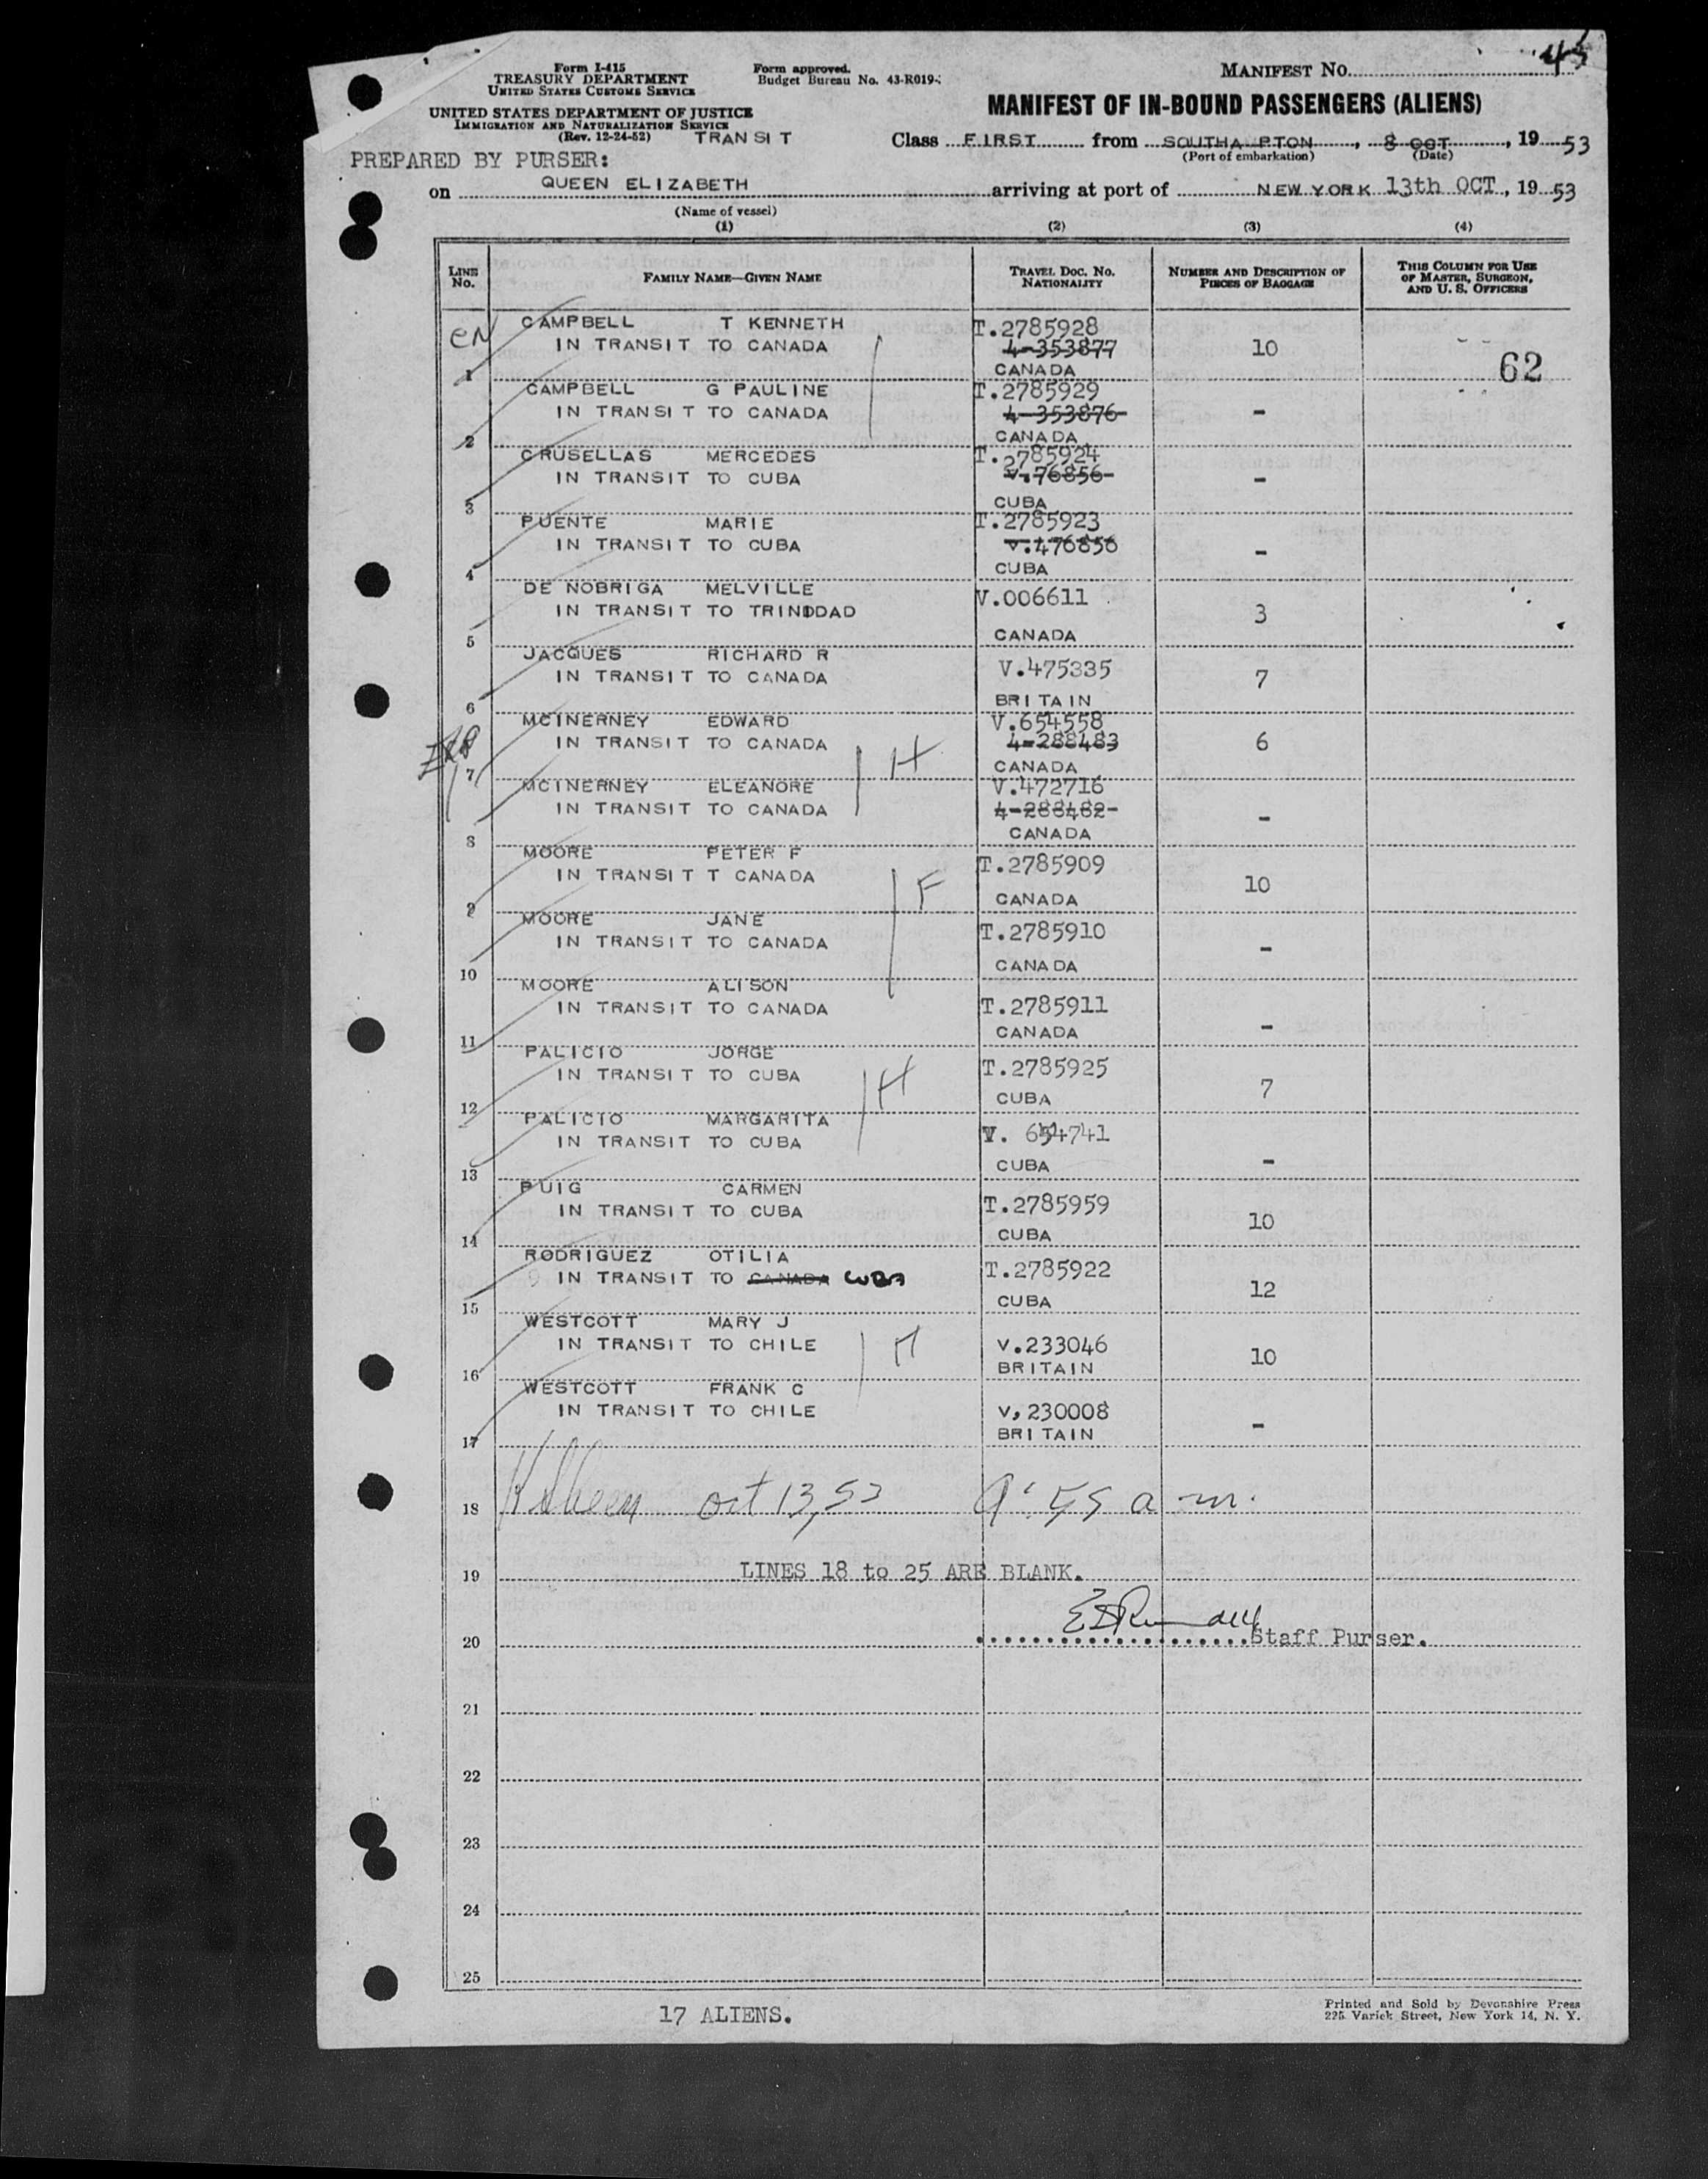 45
Form I-415
TREASURY DEPARTMENT
UNITED STATES CUSTOMS SERVICE
Form approved.
Budget Bureau No. 43-R019-
MANIFEST No.
UNITED STATES DEPARTMENT OF JUSTICE
IMMIGRATION AND NATURALIZATION SERVICE
(Rev. 12-24-52) TRANSIT
MANIFEST OF IN-BOUND PASSENGERS (ALIENS)
Class FIRST from SOUTHA PTON, 8 OCT, 19 53
(Port of embarkation) (Date)
PREPARED BY PURSER:
on QUEEN ELIZABETH arriving at port of NEW YORK 13th OCT, 19 53
(Name of vessel)
(1) (2) (3) (4)
LINE No. FAMILY NAME—GIVEN NAME TRAVEL DOC. NO. NATIONALITY NUMBER AND DESCRIPTION OF PIECES OF BAGGAGE THIS COLUMN FOR USE OF MASTER, SURGEON, AND U. S. OFFICERS
CAMPBELL T KENNETH T.2785928
IN TRANSIT TO CANADA 4-353877 10
1 CANADA 62
CAMPBELL G PAULINE T.2785929
IN TRANSIT TO CANADA 4-353876 -
2 CANADA
CRUSELLAS MERCEDES T.2785924
IN TRANSIT TO CUBA v.76856 -
3 CUBA
PUENTE MARIE T.2785923
IN TRANSIT TO CUBA v.476856 -
4 CUBA
DE NOBRIGA MELVILLE V.006611
IN TRANSIT TO TRINIDDAD 3
5 CANADA
JACQUES RICHARD R
IN TRANSIT TO CANADA V.475335 7
6 BRITAIN
MCINERNEY EDWARD V.654558
IN TRANSIT TO CANADA 4-288483 6
7 CANADA H
MCINERNEY ELEANORE V.472716
IN TRANSIT TO CANADA 4-288482- -
8 CANADA
MOORE PETER F T.2785909
IN TRANSIT T CANADA 10
9 CANADA F
MOORE JANE T.2785910
IN TRANSIT TO CANADA -
10 CANADA
MOORE ALISON
IN TRANSIT TO CANADA T.2785911
11 CANADA -
PALICIO JORGE T.2785925
IN TRANSIT TO CUBA 7
12 CUBA H
PALICIO MARGARITA V. 654741
IN TRANSIT TO CUBA
13 CUBA -
PUIG CARMEN T.2785959
IN TRANSIT TO CUBA 10
14 CUBA
RODRIGUEZ OTILIA T.2785922
IN TRANSIT TO CANADA CUBA 12
15 CUBA
WESTCOTT MARY J
IN TRANSIT TO CHILE v.233046 10
16 BRITAIN
WESTCOTT FRANK C
IN TRANSIT TO CHILE v,230008 -
17 BRITAIN
18 oct 13, 53 9:55 a-m.
19 LINES 18 to 25 ARE BLANK.
20 Staff Purser.
21
22
23
24
25
17 ALIENS.
Printed and Sold by Devonshire Press
225 Varick Street, New York 14, N. Y.